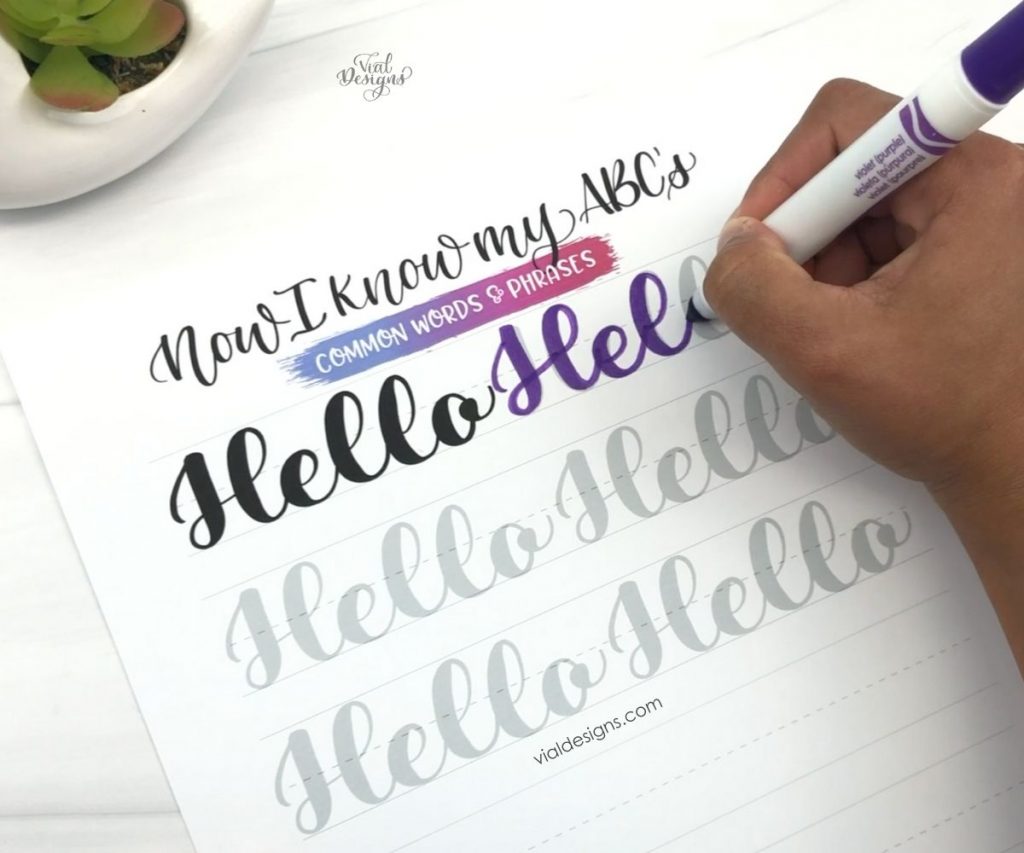 Vial
Designs
Now I Know my ABC's
COMMON WORDS & PHRASES
Hello Hel
Hello Hello
Hello Hello
vialdesigns.com
violet (purple)
violeta (púrpura)
violet (pourpre)